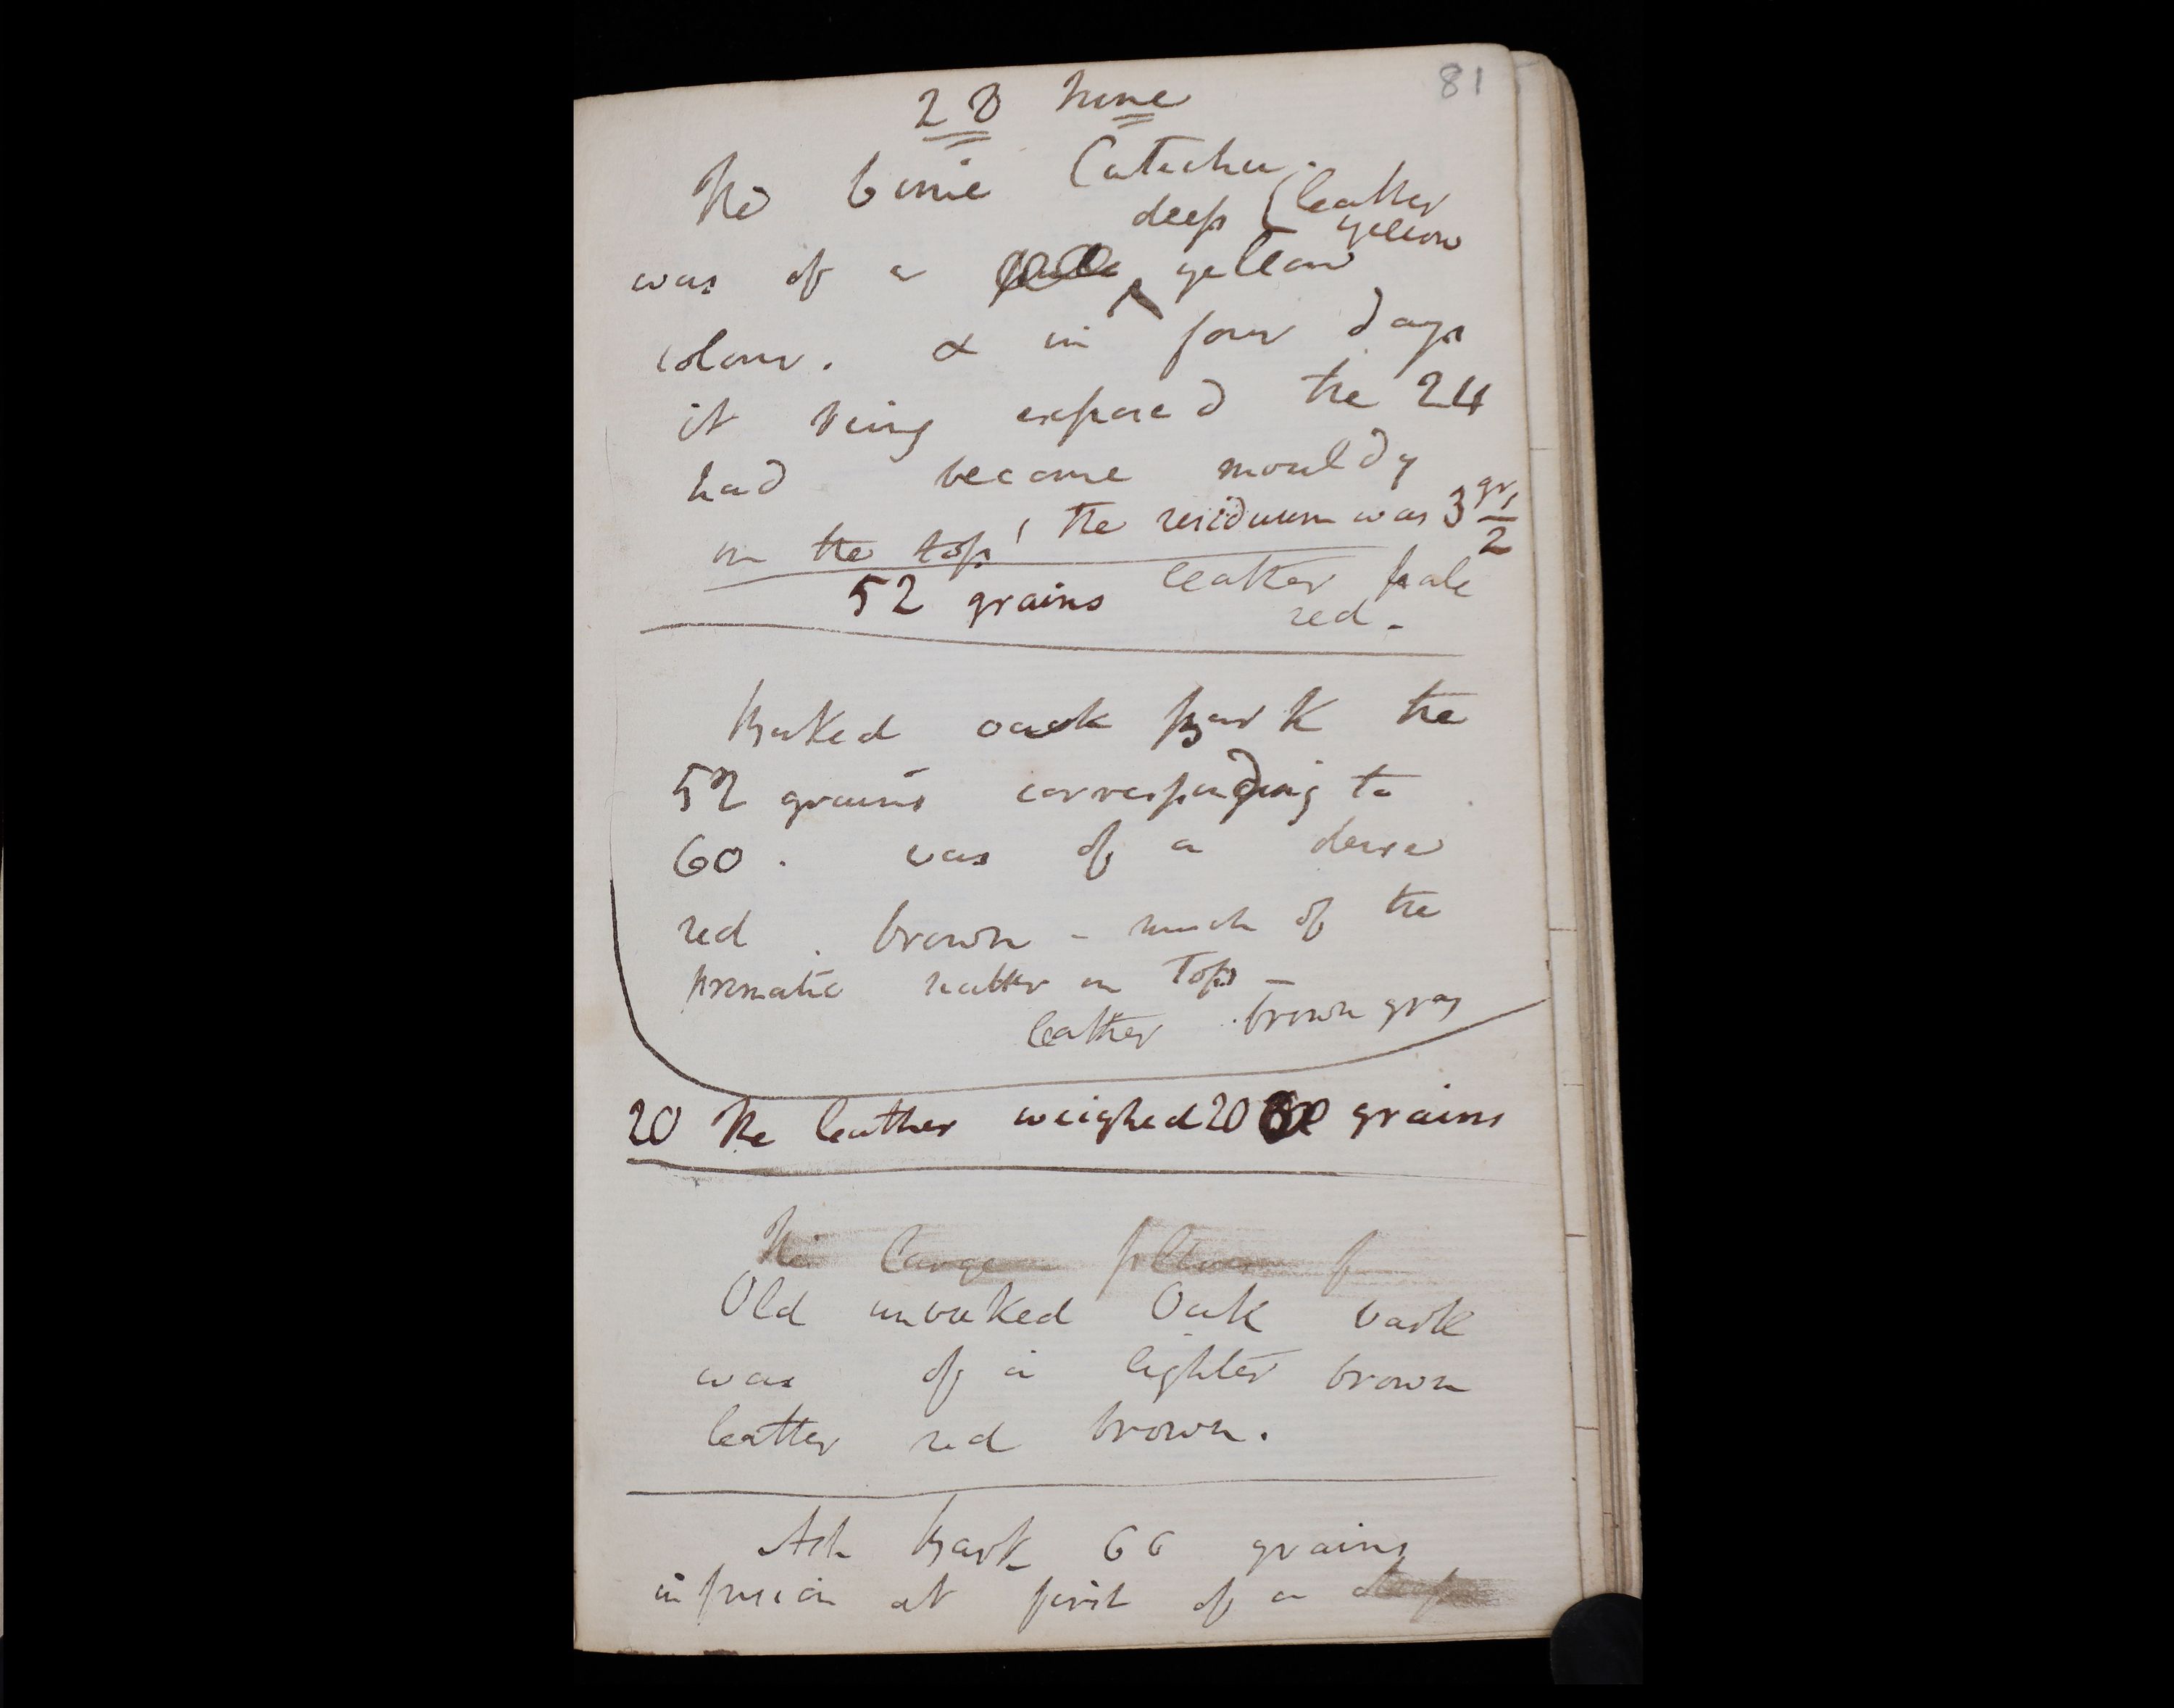 81
28 June
The Cunie Catechu.
deep (leather
yellow
was of a yellow
colour. & in four days
it being exposed the 24
had become mouldy
on the top, the residuum was 3 grs/2
52 grains leather pale
red -
Baked oak Bark the
52 grains corresponding to
60. was of a dense
red brown - much of the
matter on Top -
leather brown gray
20 The leather weighed 20 grains
The large
Old unbaked Oak bark
was of a lighter brown
leather red brown.
Ash Bark 66 grains
infusion at first of a deep